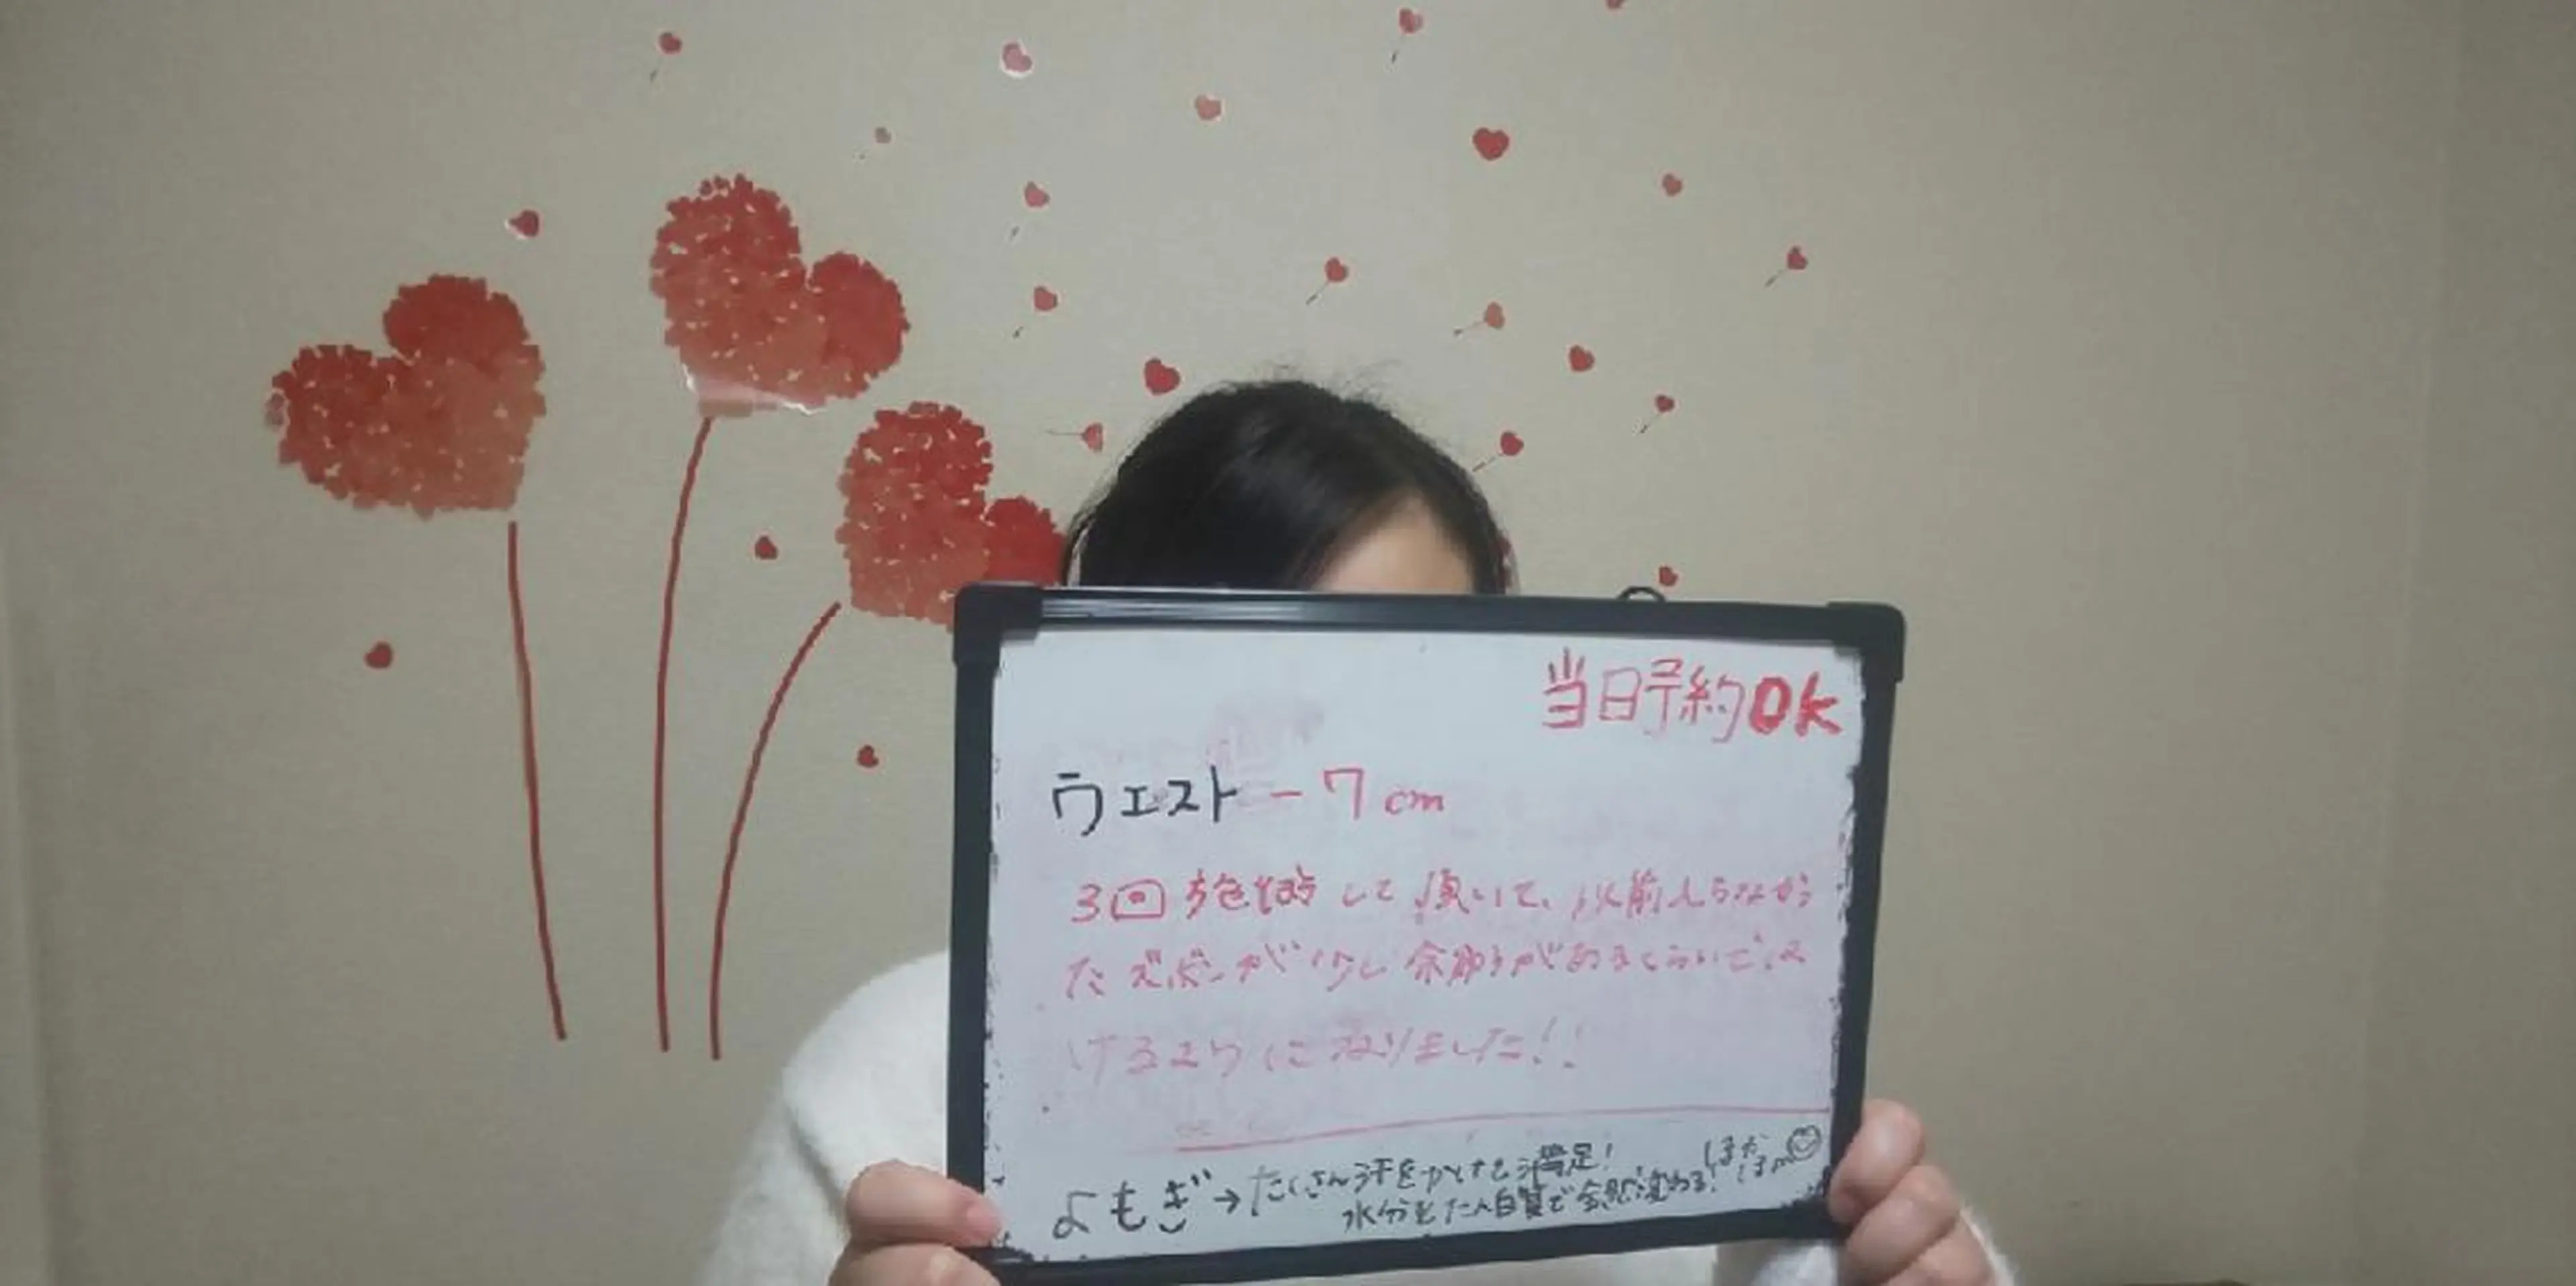 当日予約OK
ウエスト -7cm
3回施術して頂いて、以前入らなかっ
たズボンが少し余裕があるくらいでは
けるようになりました!!
よもぎ→たくさん汗をかけて満足! ぽかぽか
水分とたん白質で